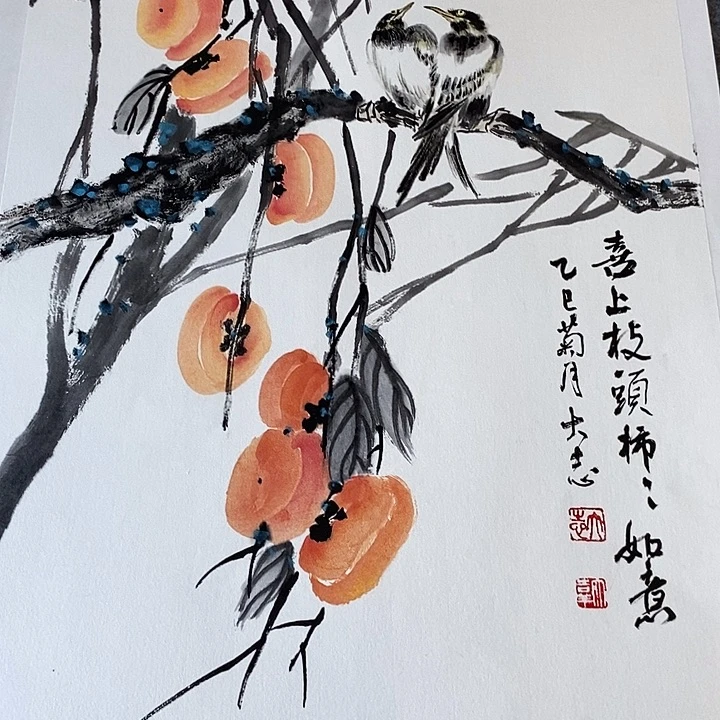 喜上枝頭柿〻如意
乙巳菊月大志
大志